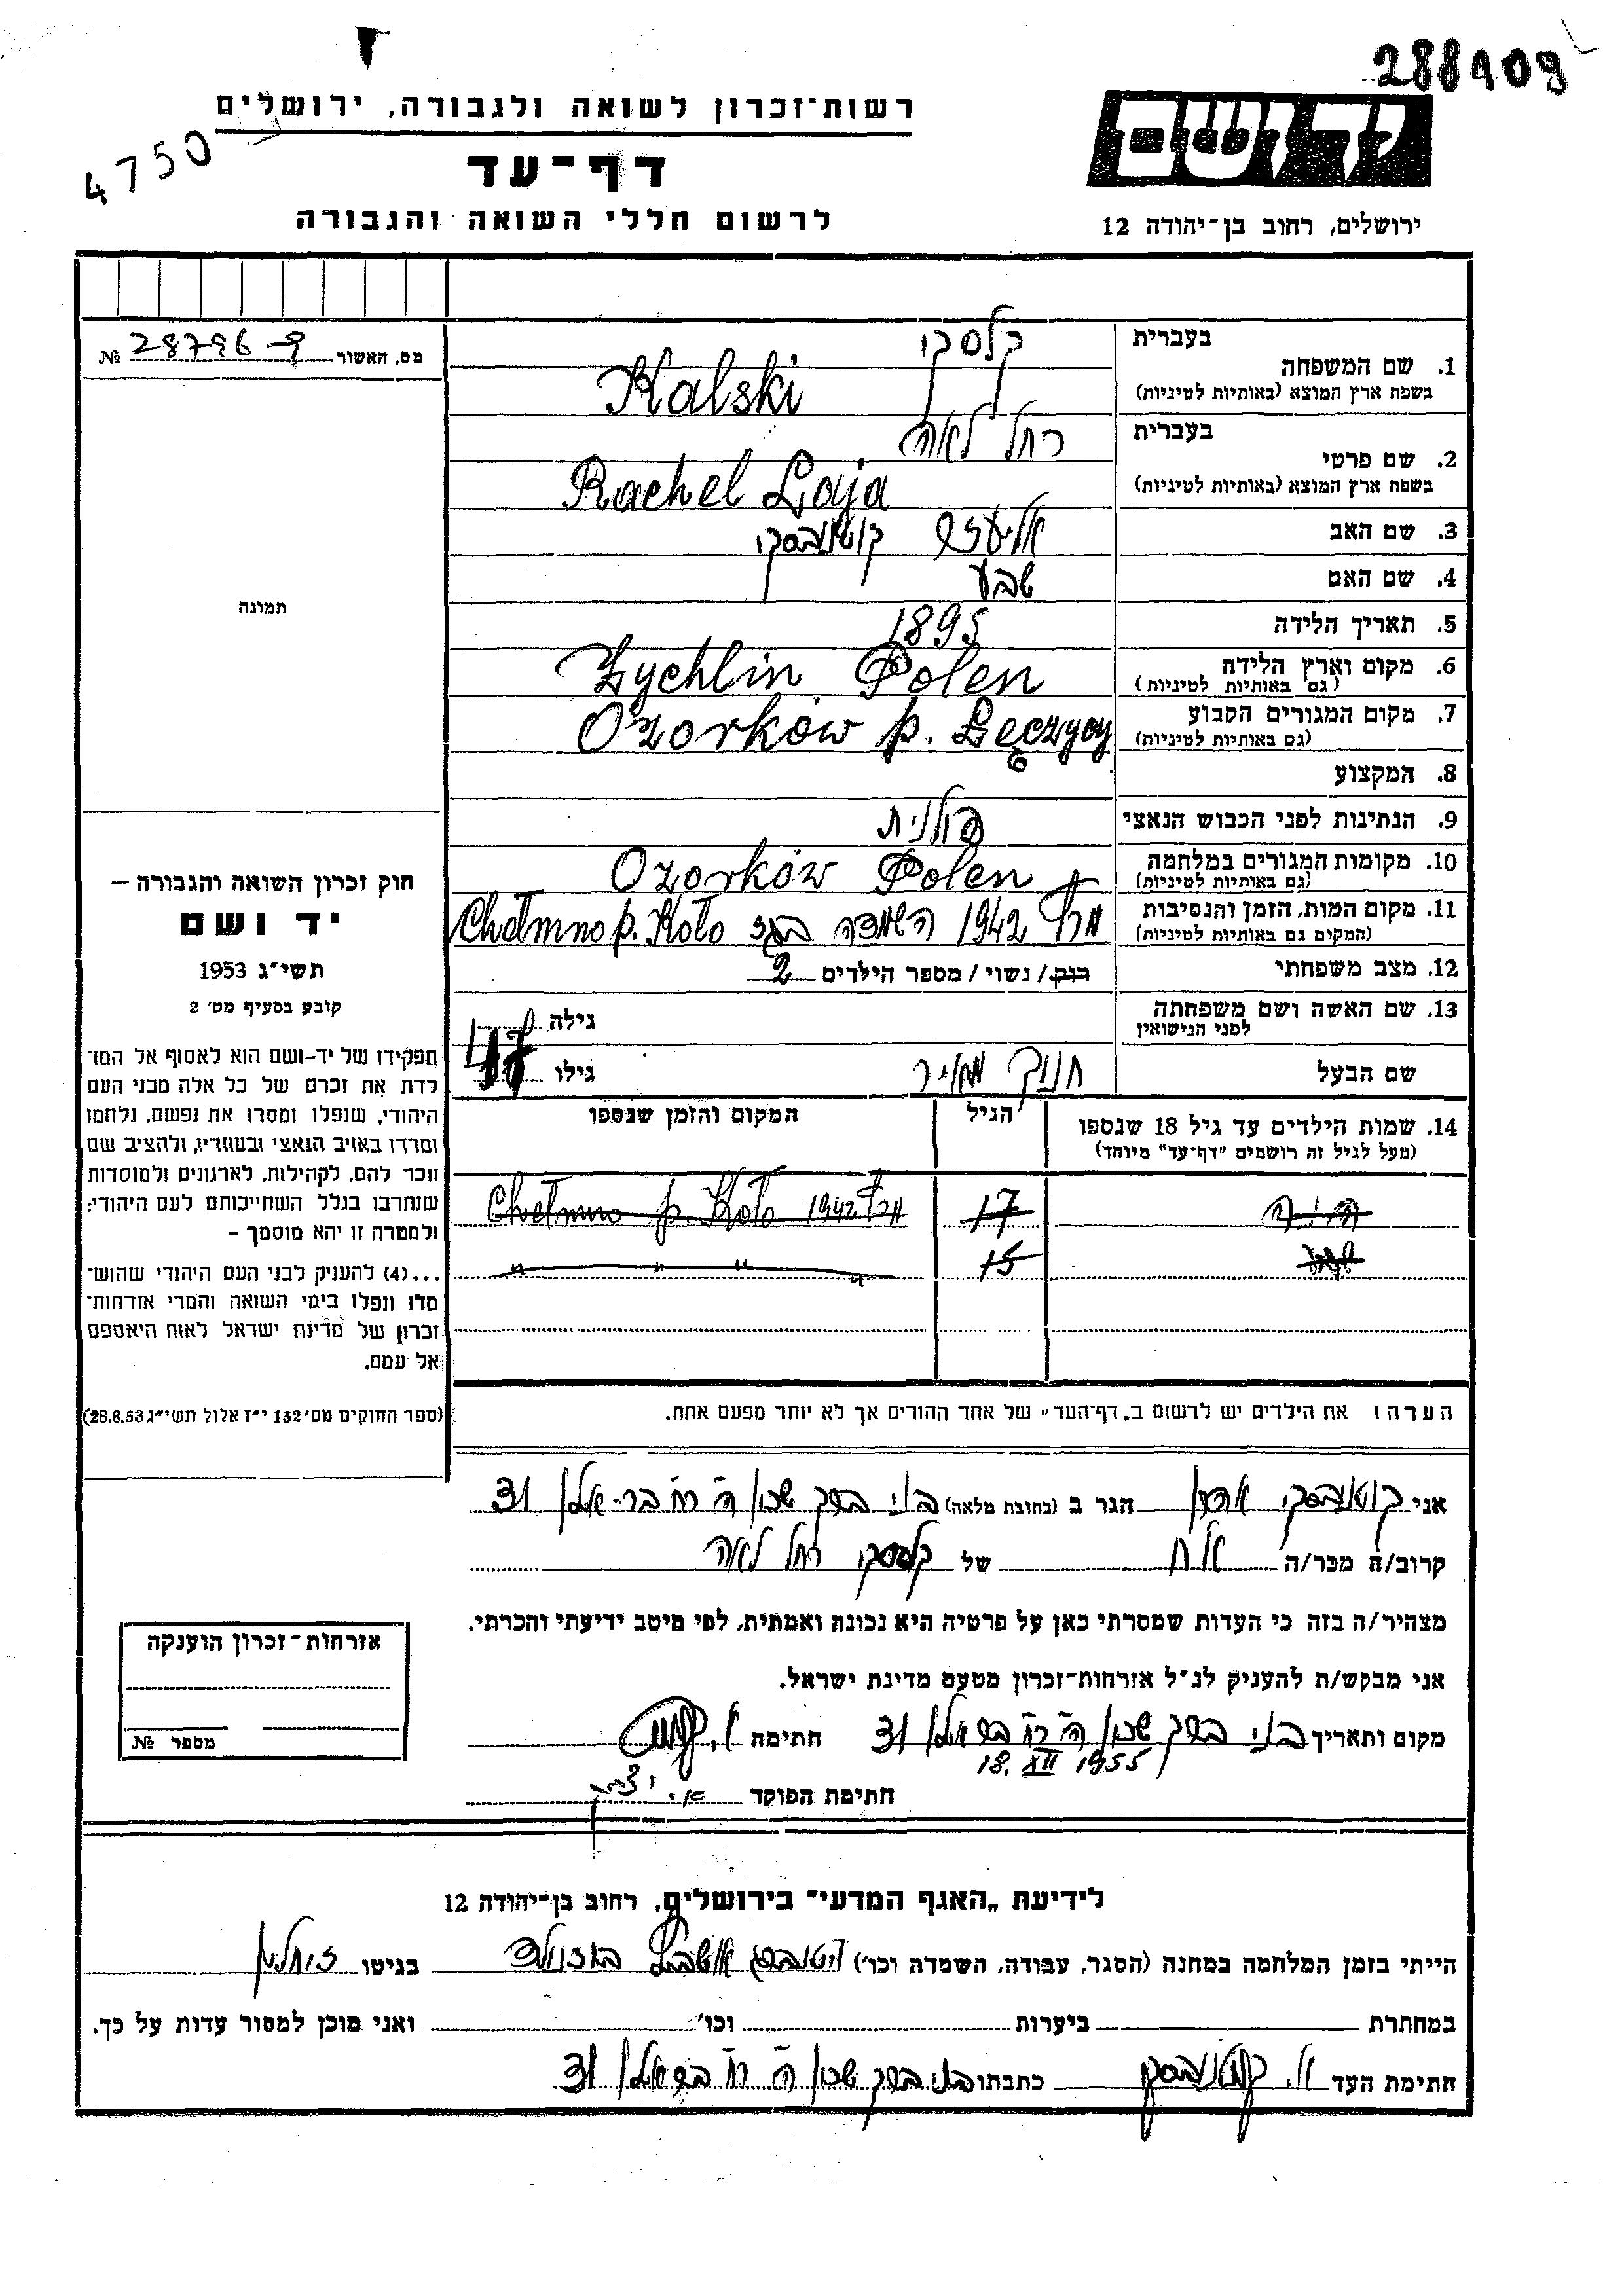 288109
רשות־זכרון לשואה ולגבורה, ירושלים
4750
דף־עד
לרשום חללי השואה והגבורה
ידושם
ירושלים, רחוב בן־יהודה 12
מס. האשור № 28796-9
תמונה
בעברית
קלסקי
1. שם המשפחה
בשפת ארץ המוצא (באותיות לטיניות)
Kalski
בעברית
רחל לאה
2. שם פרטי
בשפת ארץ המוצא (באותיות לטיניות)
Rachel Laja
3. שם האב
אליעזר קוטנובסקי
4. שם האם
שבע
5. תאריך הלידה
1895
6. מקום וארץ הלידה
(גם באותיות לטיניות)
Żychlin Polen
7. מקום המגורים הקבוע
(גם באותיות לטיניות)
Ozorków p. Łęczycy
8. המקצוע
9. הנתינות לפני הכבוש הנאצי
פולנית
10. מקומות המגורים במלחמה
(גם באותיות לטיניות)
Ozorków Polen
11. מקום המות, הזמן והנסיבות
(המקום גם באותיות לטיניות)
מרץ 1942 השמדה בגז Chełmno p. Koło
12. מצב משפחתי
רוק / נשוי / מספר הילדים 2
13. שם האשה ושם משפחתה
לפני הנישואין
גילה
שם הבעל
חנוך מאיר
גילו 47
14. שמות הילדים עד גיל 18 שנספו
(מעל לגיל זה רושמים "דף־עד" מיוחד)
הגיל
המקום והזמן שנספו
17 Chełmno p. Koło 1942 מרץ
15 " " " "
הערה: את הילדים יש לרשום ב„דף־העד" של אחד ההורים אך לא יותר מפעם אחת.
חוק זכרון השואה והגבורה –
יד ושם
תשי״ג 1953
קובע בסעיף מס׳ 2
תפקידו של יד-ושם הוא לאסוף אל המו־
לדת את זכרם של כל אלה מבני העם
היהודי, שנפלו ומסרו את נפשם, נלחמו
ומרדו באויב הנאצי ובעוזריו, ולהציב שם
וזכר להם, לקהילות, לארגונים ולמוסדות
שנחרבו בגלל השתייכותם לעם היהודי;
ולמטרה זו יהא מוסמך –
...(4) להעניק לבני העם היהודי שהוש־
מדו ונפלו בימי השואה והמרי אזרחות־
זכרון של מדינת ישראל לאות היאספם
אל עמם.
(ספר החוקים מס׳ 132 י״ז אלול תשי״ג 28.8.53)
אני קוטנובסקי אהרן הגר ב (כתובת מלאה) בני ברק שכון ה׳ רח׳ בר-אילן 31
קרוב/ה מכר/ה אח של קלסקי רחל לאה
מצהיר/ה בזה כי העדות שמסרתי כאן על פרטיה היא נכונה ואמתית, לפי מיטב ידיעתי והכרתי.
אני מבקש/ת להעניק לנ״ל אזרחות־זכרון מטעם מדינת ישראל.
מקום ותאריך בני ברק שכון ה׳ רח׳ בר אילן 31 חתימה
18. XII 1955
חתימת הפוקד
אזרחות־זכרון הוענקה
מספר №
לידיעת „האגף המדעי״ בירושלים, רחוב בן־יהודה 12
הייתי בזמן המלחמה במחנה (הסגר, עבודה, השמדה וכו׳) בוכנולד בגיטו זיחלין
במחתרת ביערות וכו׳ ואני מוכן למסור עדות על כך.
חתימת העד א. קוטנובסקי כתבתו בני ברק שכון ה׳ רח׳ בר אילן 31